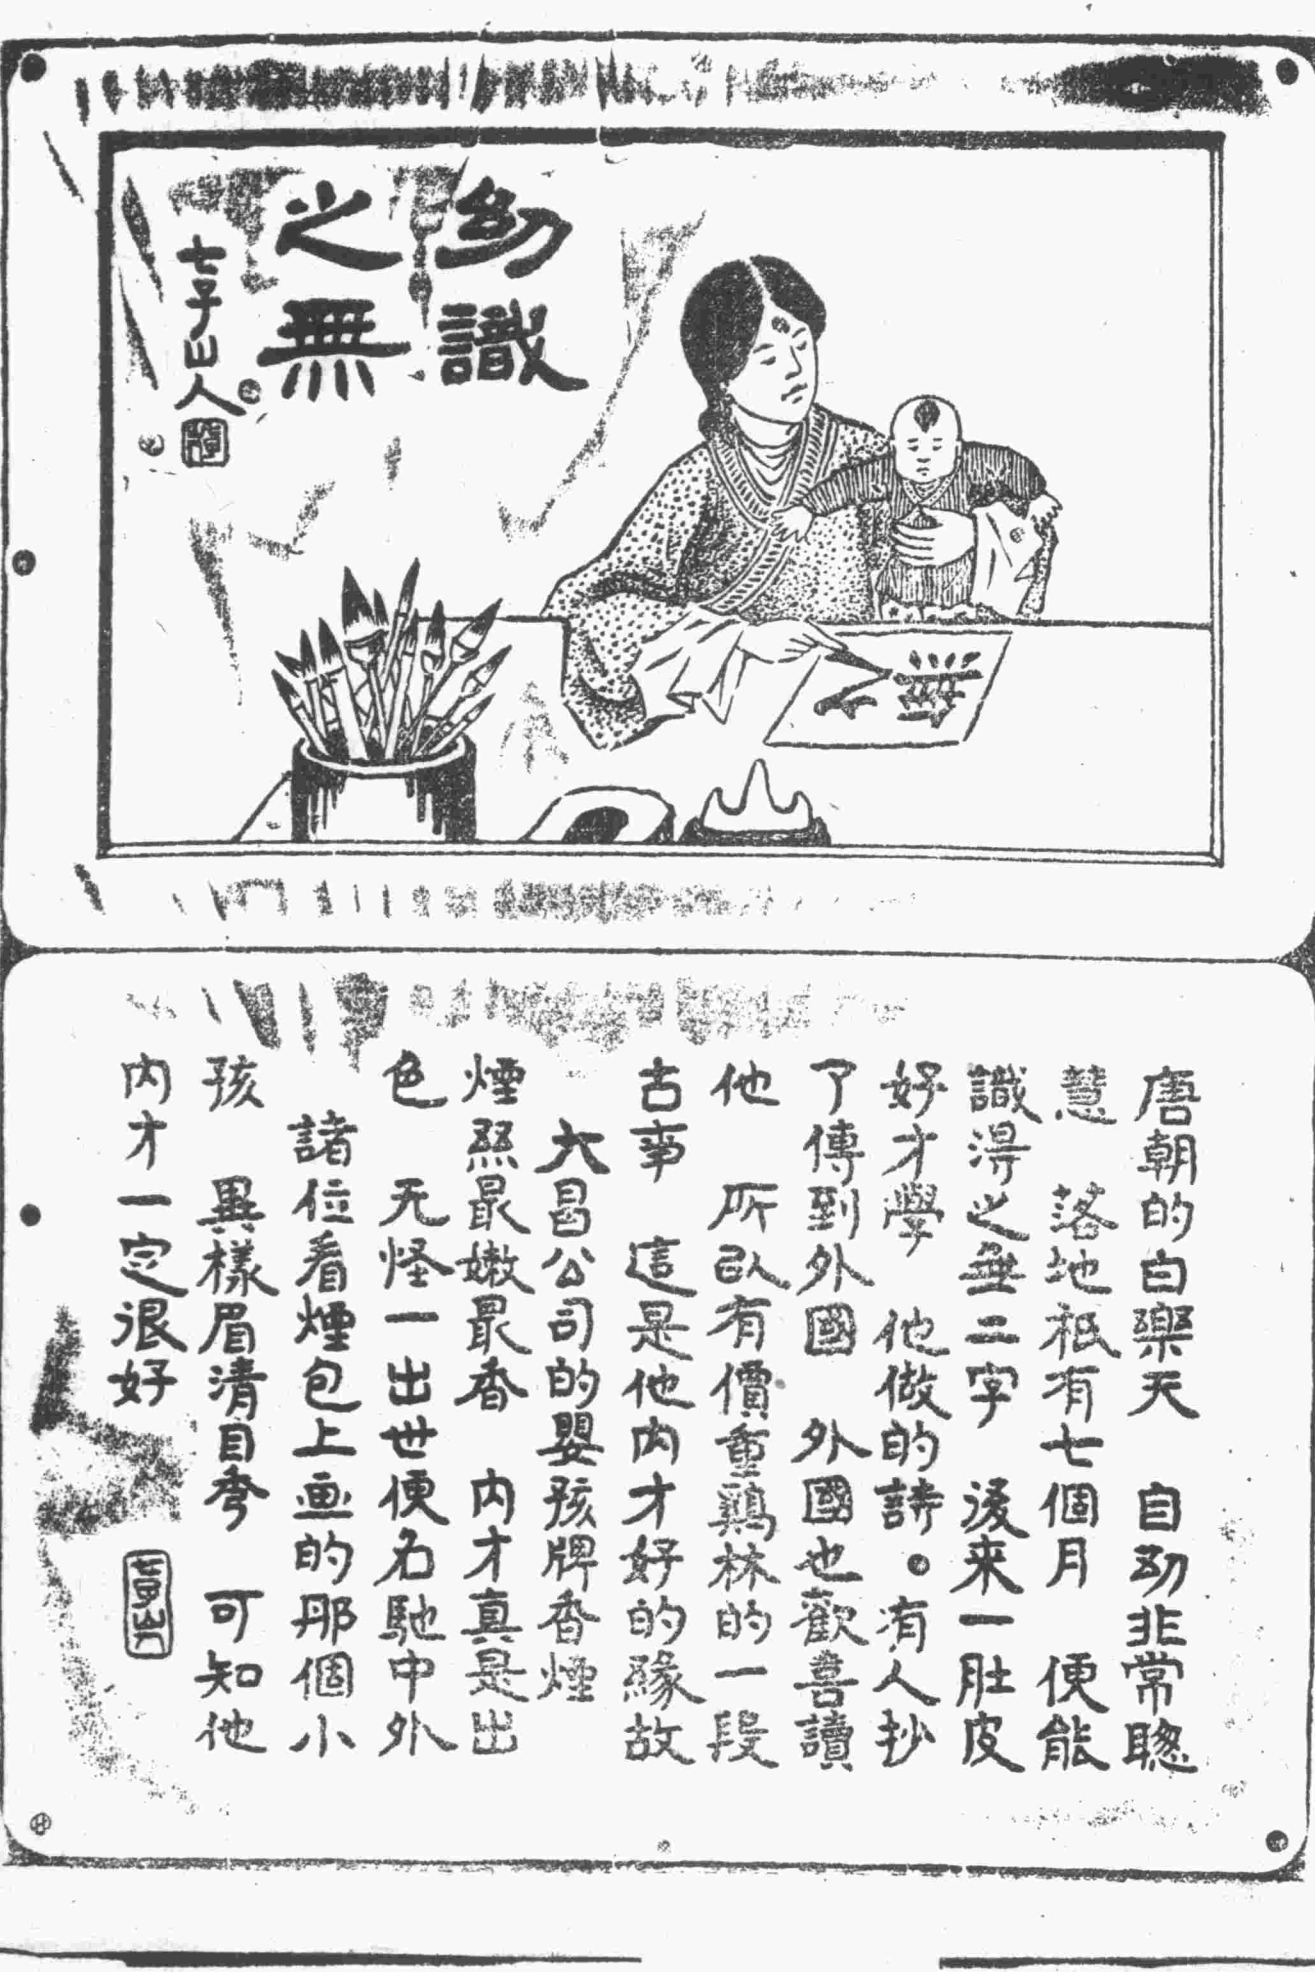 幼識
之無
七子山人
之無
唐朝的白樂天　自幼非常聰
慧　落地祇有七個月　便能
識得之無二字　後来一肚皮
好才學　他做的詩。有人抄
了傳到外國　外國也歡喜讀
他　所以有價重鷄林的一段
古事　這是他內才好的緣故
大昌公司的嬰孩牌香煙
煙絲最嫩最香　內才真是出
色　无怪一出世便名馳中外
諸位看煙包上画的那個小
孩　異樣眉清目秀　可知他
內才一定很好